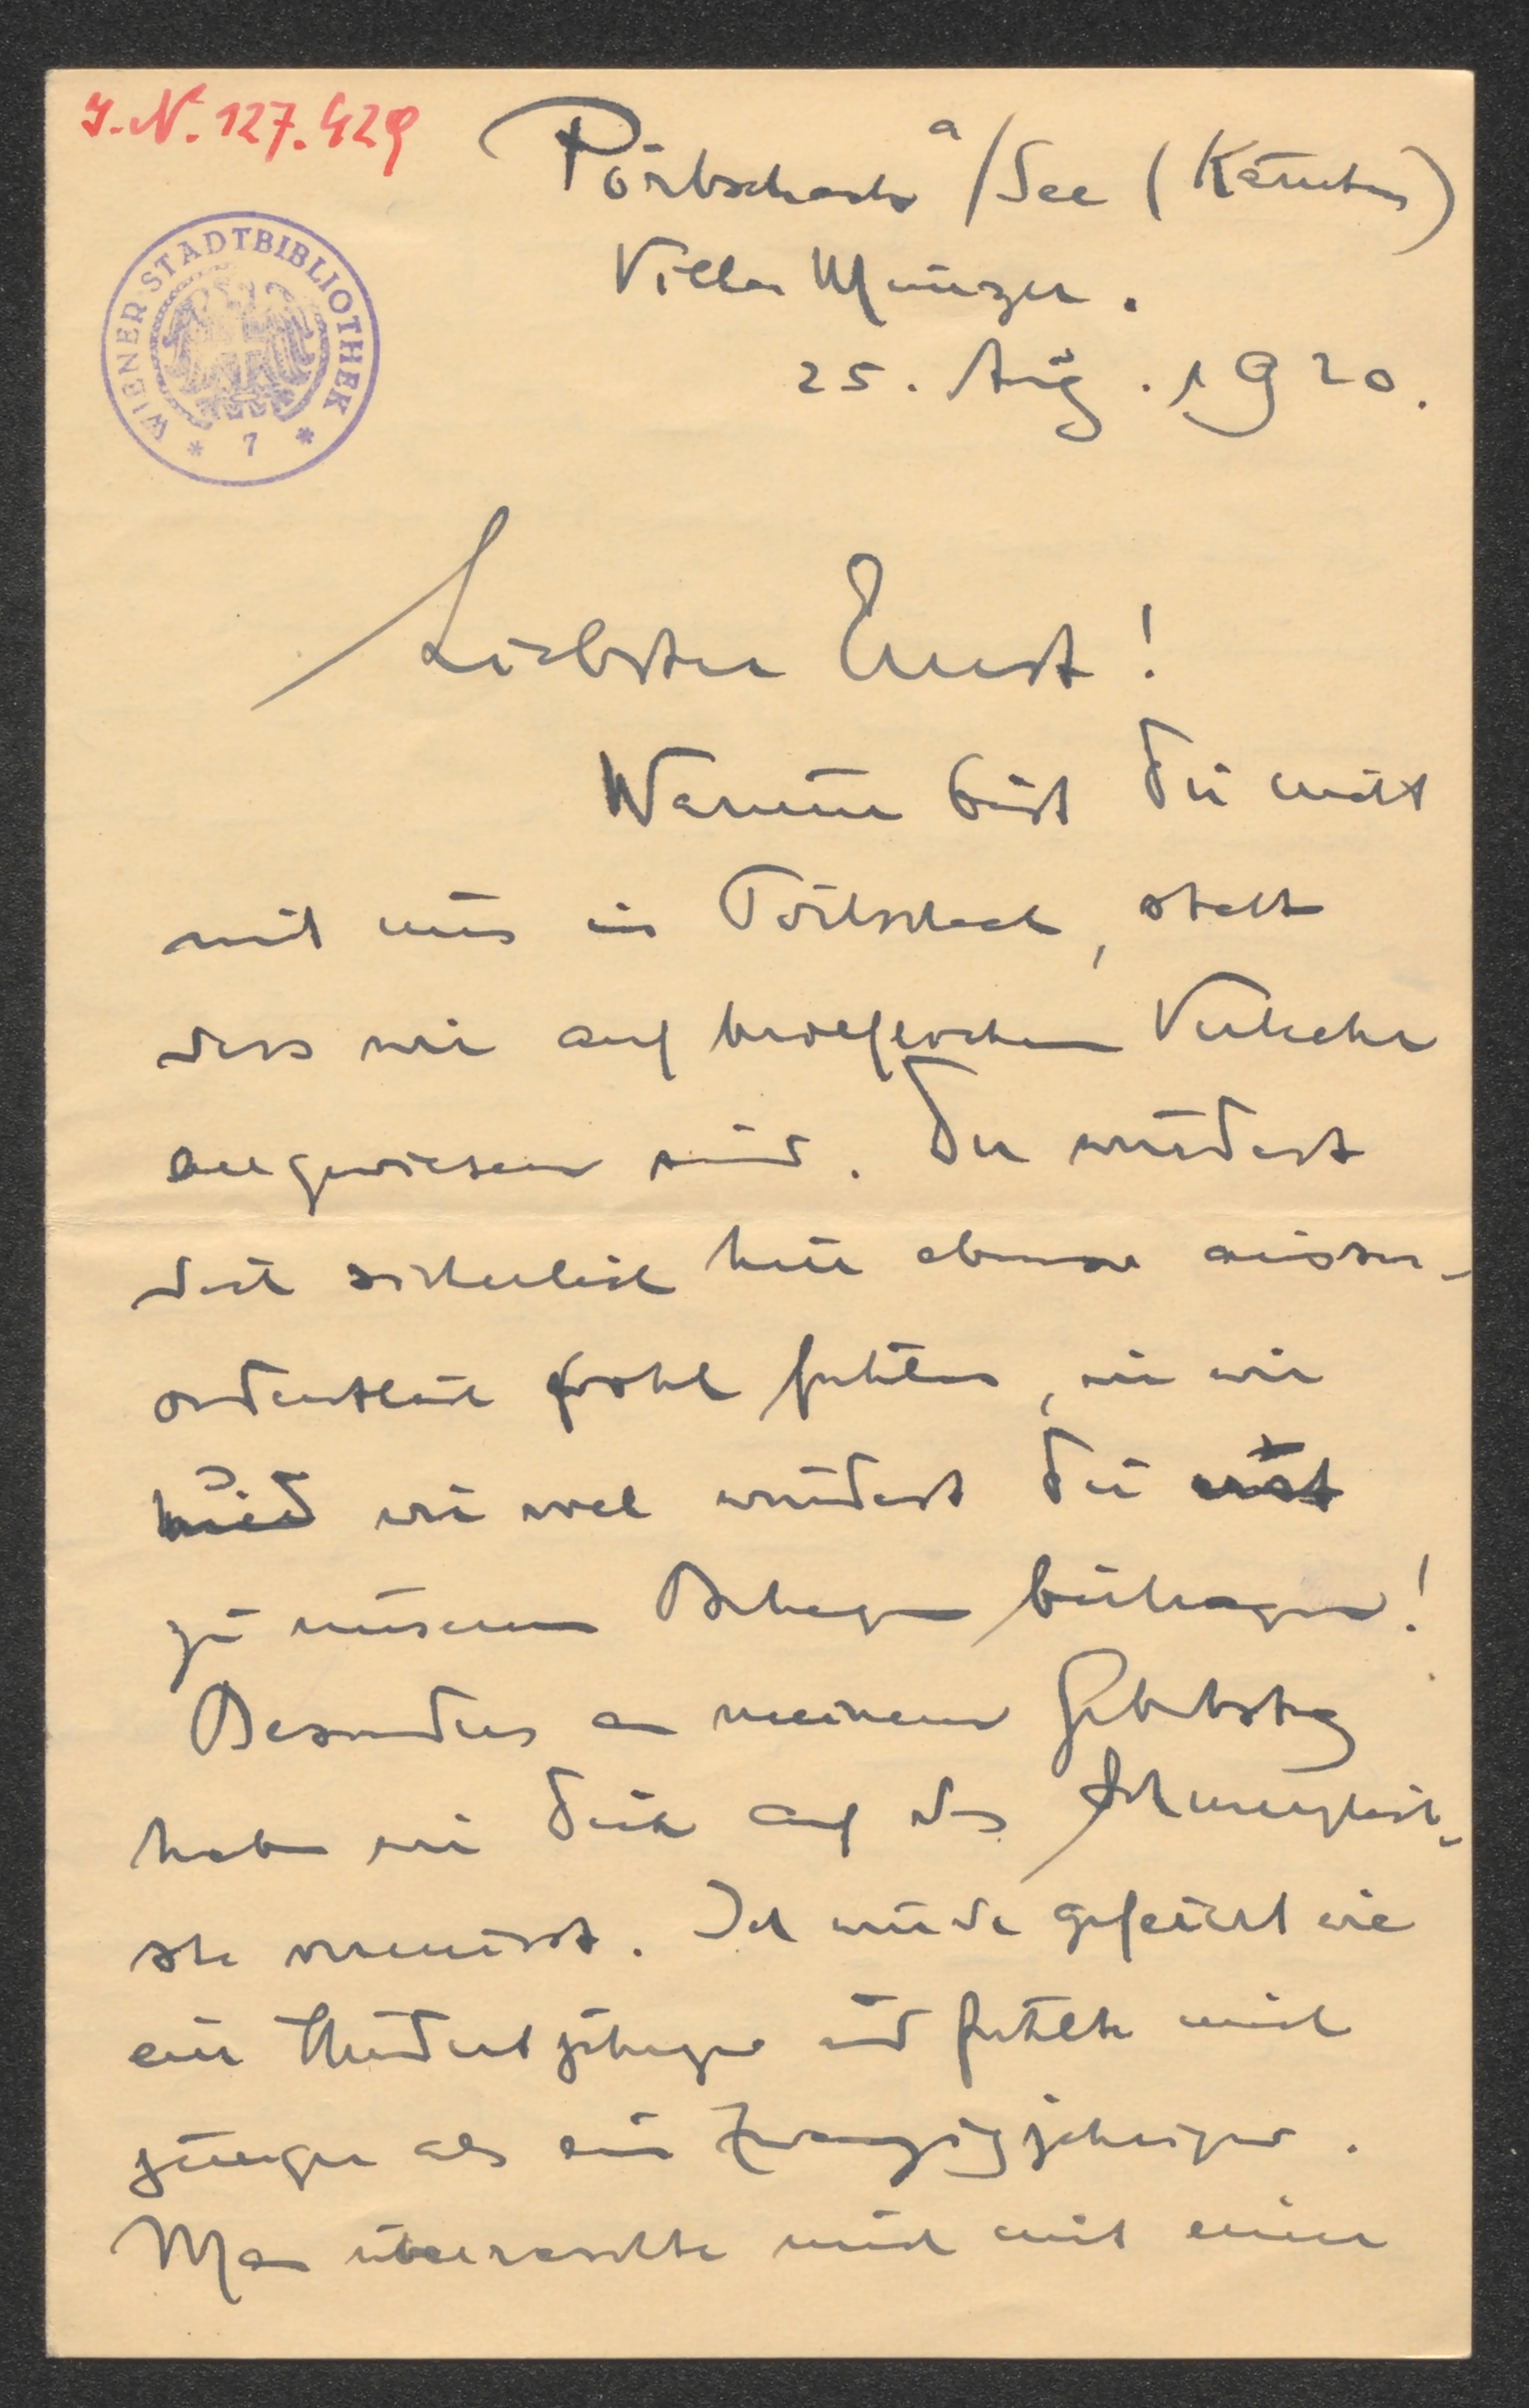 I.N. 127.429
WIENER STADTBIBLIOTHEK
* 7 *
Pörtschach a/See (Kärnten)
Villa Münzer.
25. Aug. 1920.
Liebster Ernst!
Warum bist Du nicht
mit uns in Pörtschach, statt
dass wir auf brieflichen Verkehr
angewiesen sind. Du würdest
Dich sicherlich hier ebenso ausser-
ordentlich wohl fühlen, wie wir
und wie viel würdest Du
zu unserem Behagen beitragen!
Besonders an meinem Geburtstag
haben wir Dich auf das Schmerzlich-
ste vermisst. Ich wurde gefeiert wie
ein Hundertjähriger und fühlte mich
jünger als ein Zwanzigjähriger.
Man überraschte mich mit einer